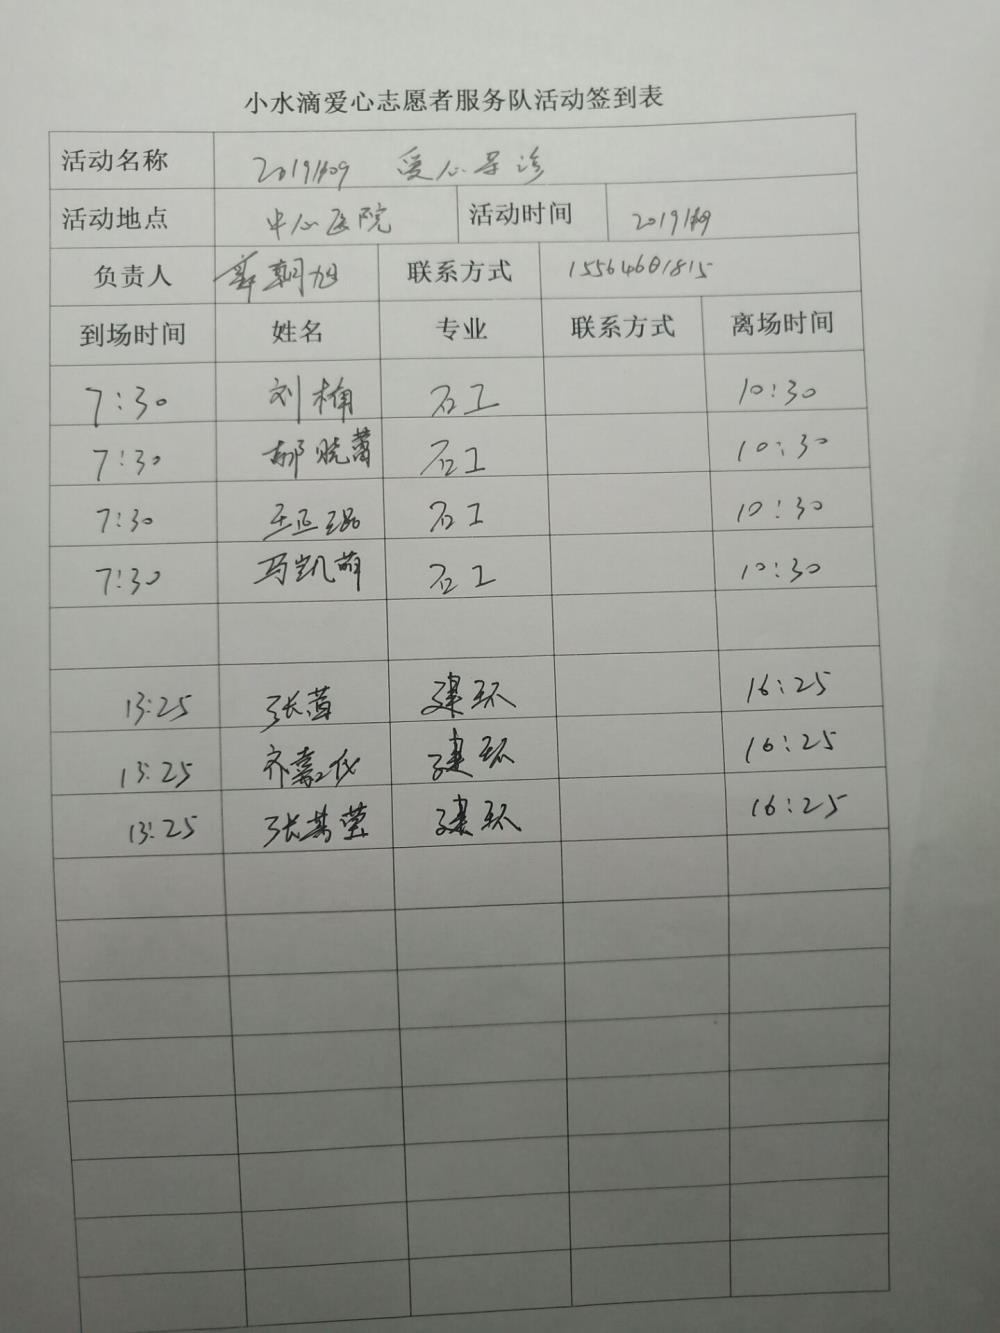 小水滴爱心志愿者服务队活动签到表
活动名称 2019 爱心导诊
活动地点 中心医院 活动时间 2019
负责人 朝旭 联系方式
到场时间 姓名 专业 联系方式 离场时间
7:30 刘楠 石工 10:30
7:30 郝晓 石工 10:30
7:30 王正 石工 10:30
7:30 马凯萌 石工 10:30
13:25 张 建环 16:25
13:25 齐 建环 16:25
13:25 张 莹 建环 16:25